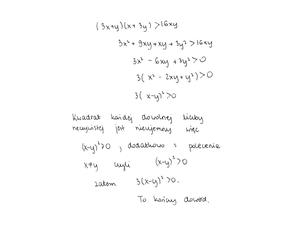 (3x+y)(x+3y)>16xy
3x²+9xy+xy+3y²>16xy
3x²-6xy+3y²>0
3(x²-2xy+y²)>0
3(x-y)²>0
Kwadrat każdej dowolnej liczby
rzeczywistej jest nieujemny więc
(x-y)²≥0, dodatkowo z polecenia
x≠y czyli (x-y)²>0
zatem 3(x-y)²>0.
To kończy dowód.